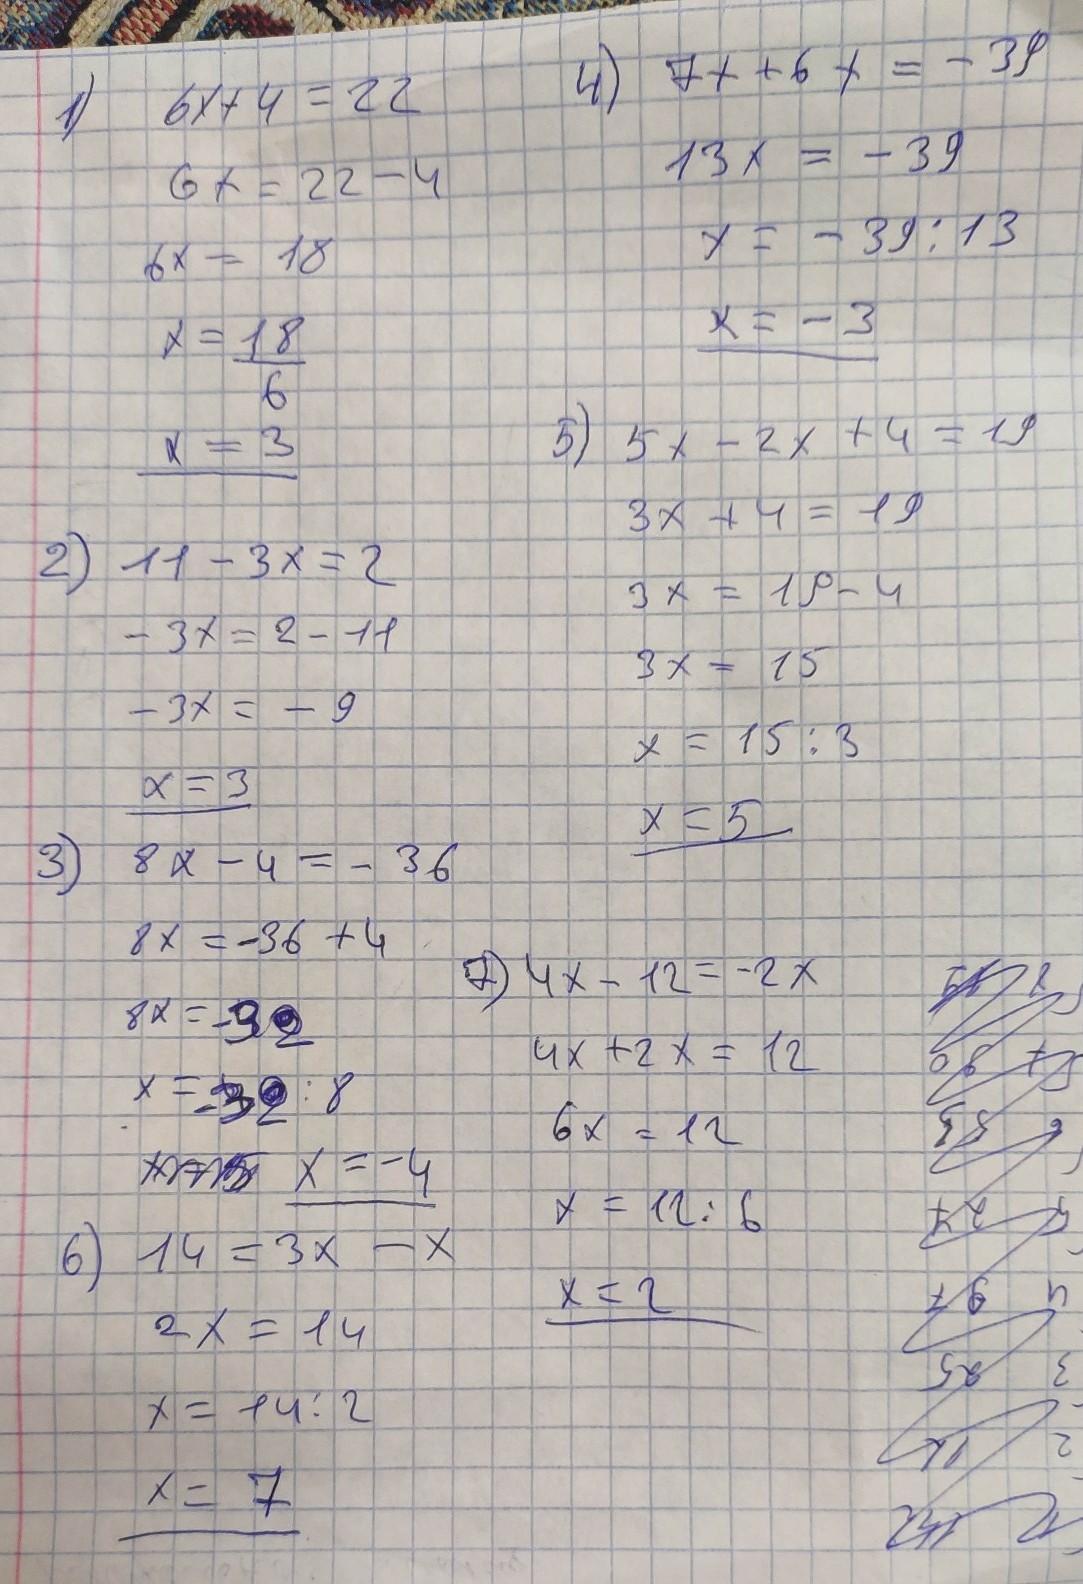 1) 6x+4=22
6x=22-4
6x=18
x=18/6
x=3
2) 11-3x=2
-3x=2-11
-3x=-9
x=3
3) 8x-4=-36
8x=-36+4
8x=-32
x=-32:8
x=-4
6) 14=3x-x
2x=14
x=14:2
x=7
4) 7x+6x=-39
13x=-39
x=-39:13
x=-3
5) 5x-2x+4=19
3x+4=19
3x=19-4
3x=15
x=15:3
x=5
7) 4x-12=-2x
4x+2x=12
6x=12
x=12:6
x=2